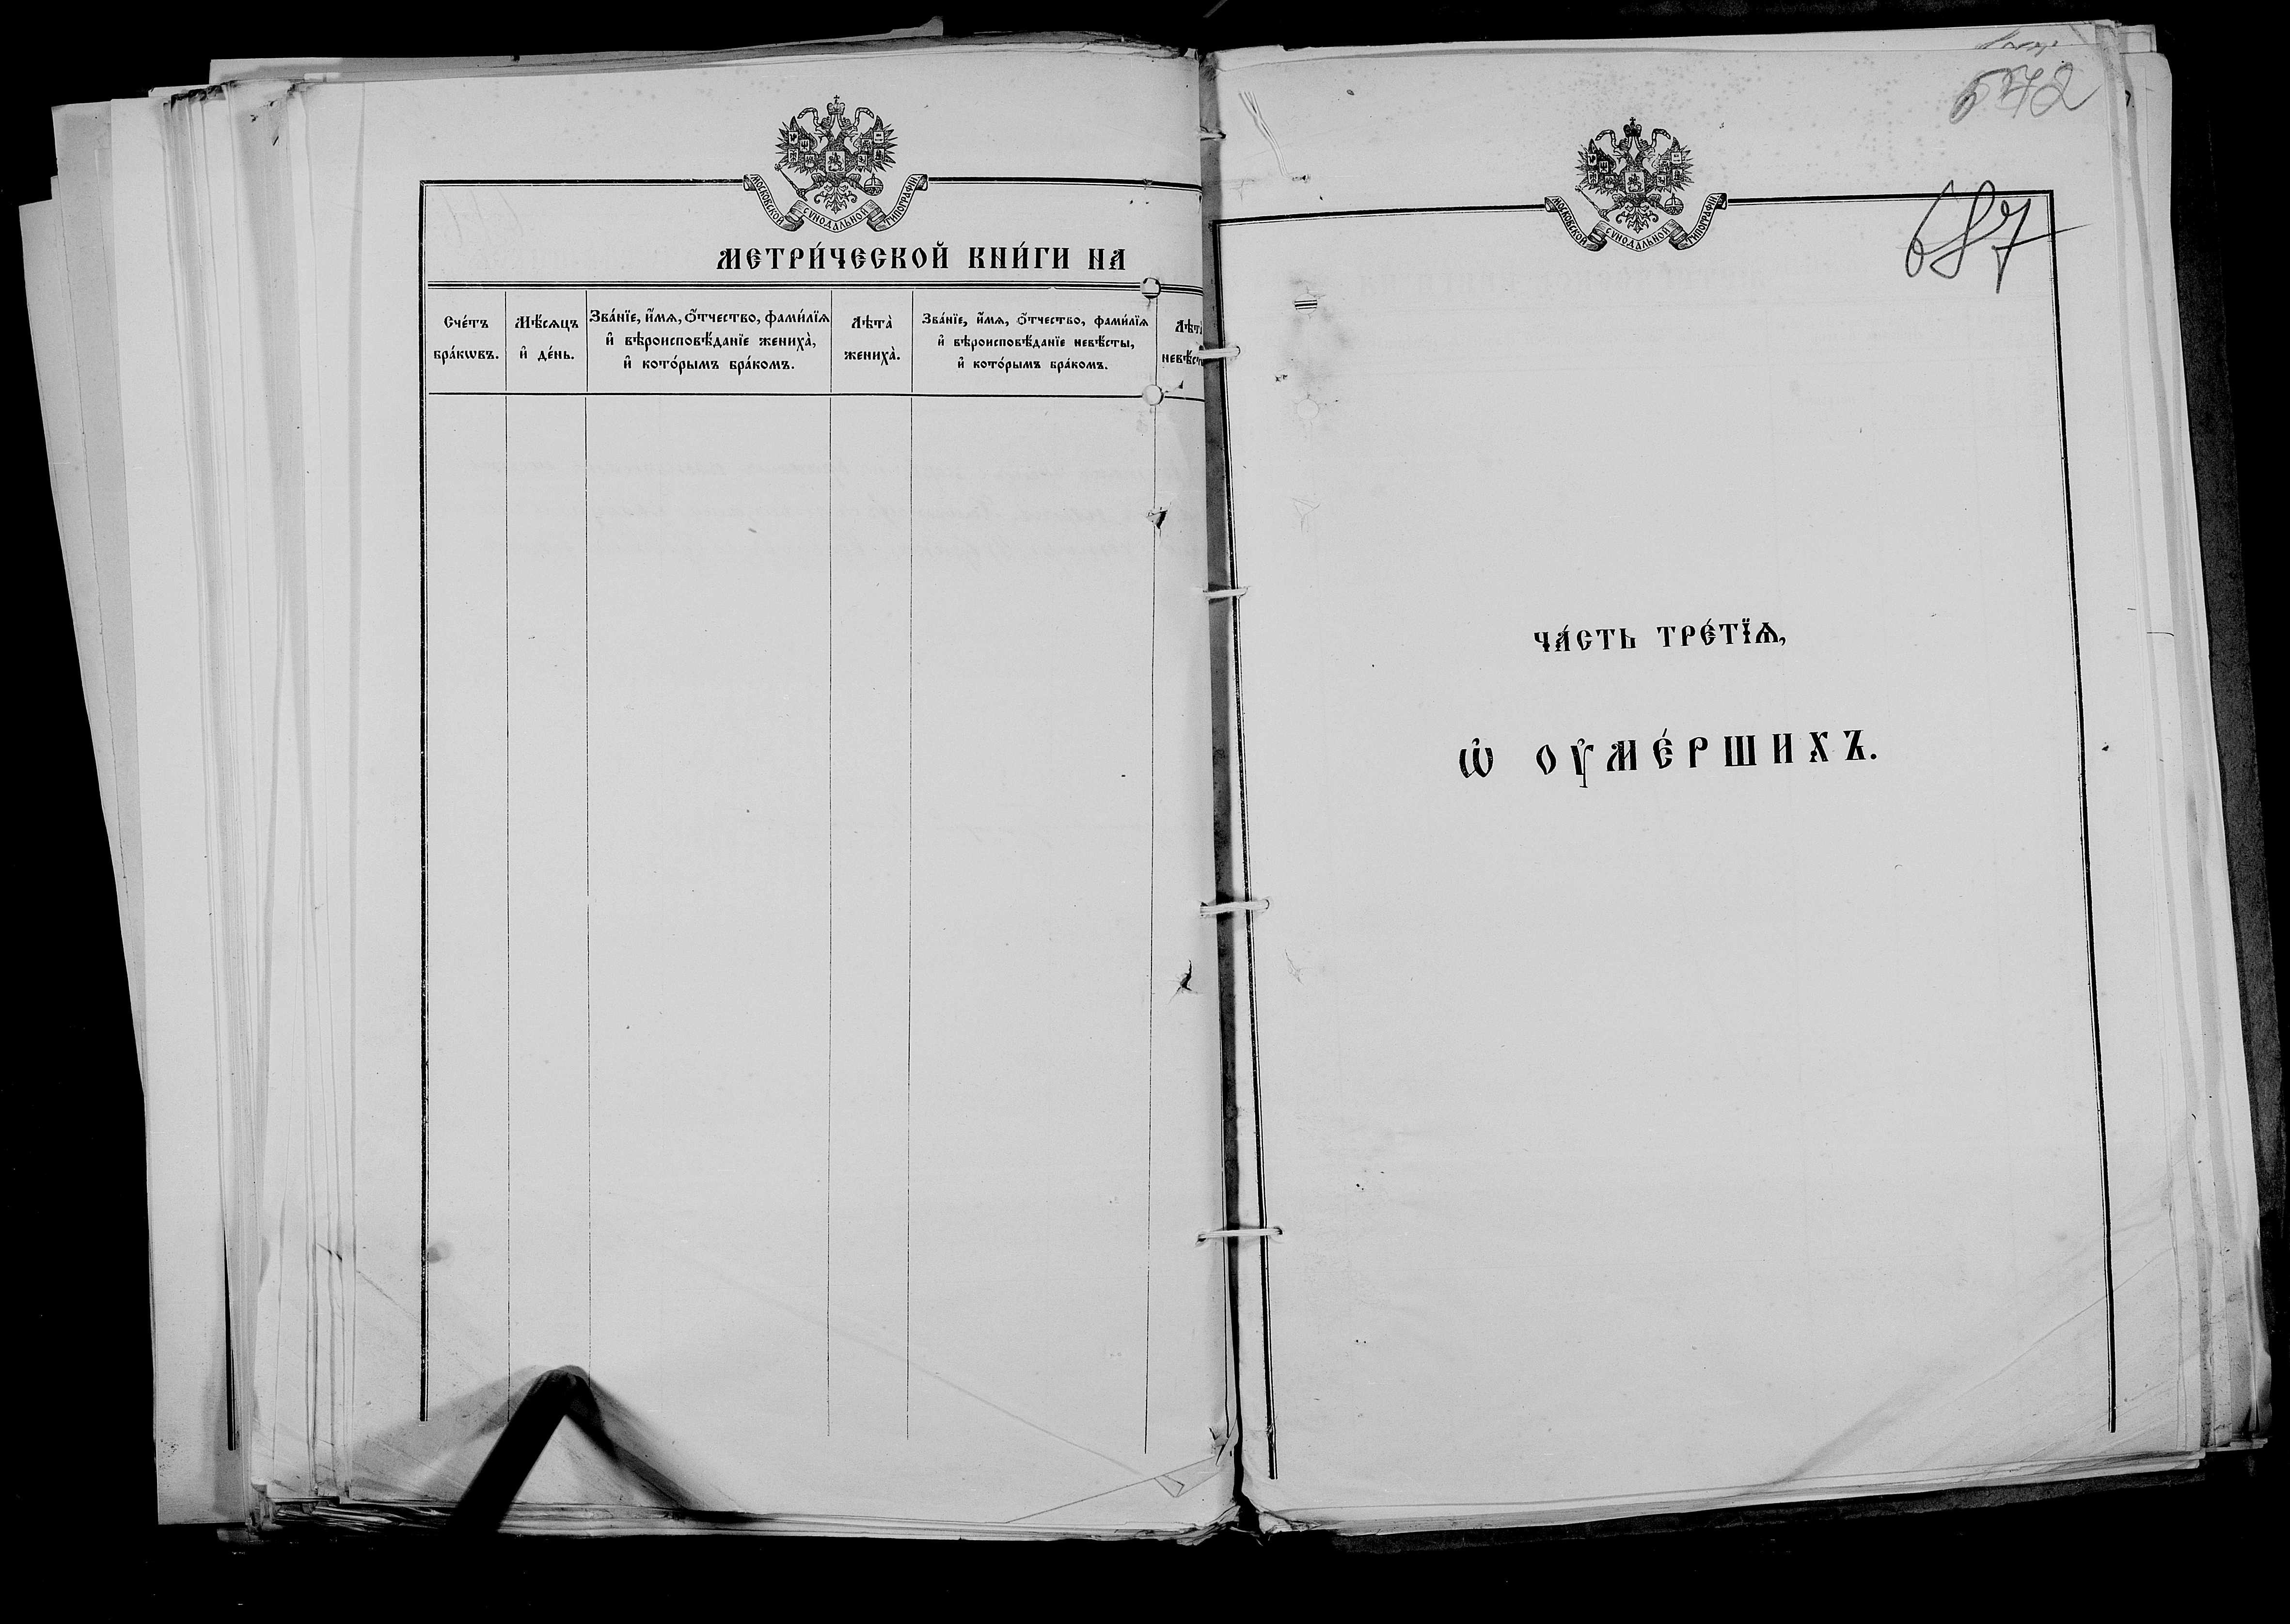 МОСКОВСКОЙ СѴНОДАЛЬНОЙ ТИПОГРАФІИ
МЕТРИ́ЧЕСКОЙ КНИ́ГИ НА
Сче́тъ
бра́кωвъ.
Мѣ́сѧцъ
и҆ де́нь.
Зва́нїе, и҆́мѧ, ѻ҆́тчество, фами́лїѧ
и҆ вѣроисповѣ́данїе жениха̀,
и҆ кото́рымъ бра́комъ.
Лѣта̀
жениха̀.
Зва́нїе, и҆́мѧ, ѻ҆́тчество, фами́лїѧ
и҆ вѣроисповѣ́данїе невѣ́сты,
и҆ кото́рымъ бра́комъ.
Лѣта
невѣ́с
642
687
МОСКОВСКОЙ СѴНОДАЛЬНОЙ ТИПОГРАФІИ
ЧА́СТЬ ТРЕ́ТЇѦ,
Ѡ҆ ОУ҆МЕ́РШИХЪ.